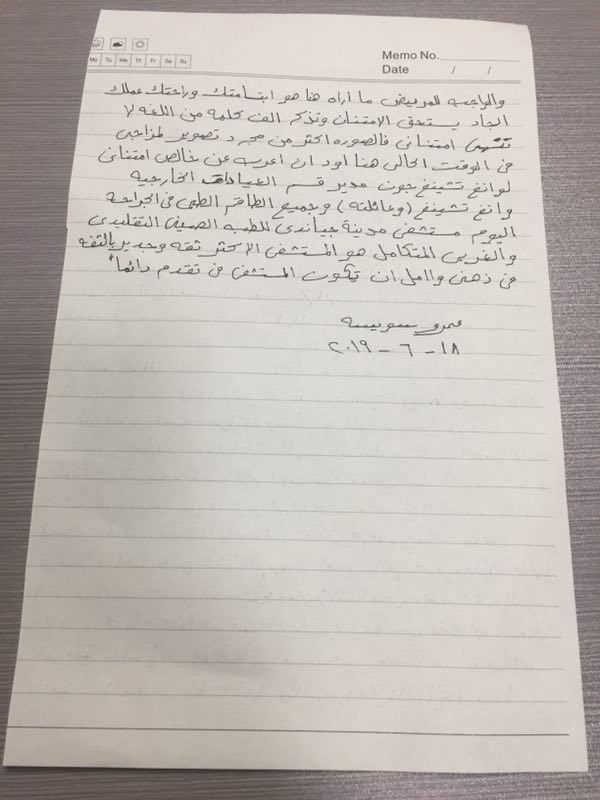 Memo No.
Date / /
Mo Tu We Th Fr Sa Su
والواجبه للمريض ما اراه هنا هو ابتسامتك وراحتك عملك
الجاد يستحق الامتنان وتذكر الف كلمه من اللغه لا
امتنانى فالصوره اكثر من مجرد تصوير لمزاجى
فى الوقت الحالى هنا اود ان اعرب عن خالص امتنانى
لوانغ تشينغ جون مدير قسم العيادات الخارجيه
وانغ تشينغ (وعائلته) وجميع الطاقم الطبى فى الجراحه
اليوم مستشفى مدينة جياندى للطب الصينى التقليدى
والغربى المتكامل هو المستشفى الاكثر ثقه وجدير بالثقه
فى ذهنى وامل ان تكون المستشفى فى تقدم دائماً
عمرو
١٨ - ٦ - ٢٠١٩